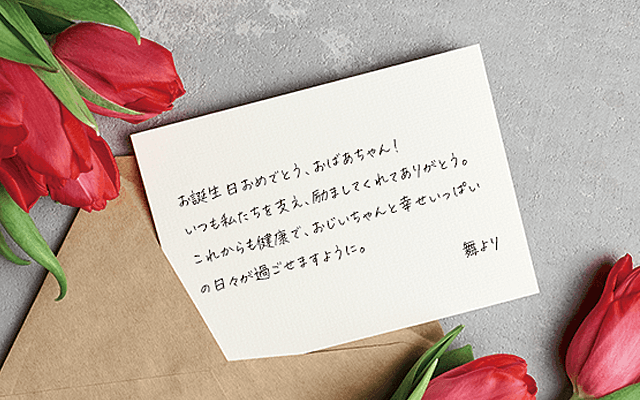 お誕生日おめでとう、おばあちゃん!
いつも私たちを支え、励ましてくれてありがとう。
これからも健康で、おじいちゃんと幸せいっぱい
の日々が過ごせますように。
舞より